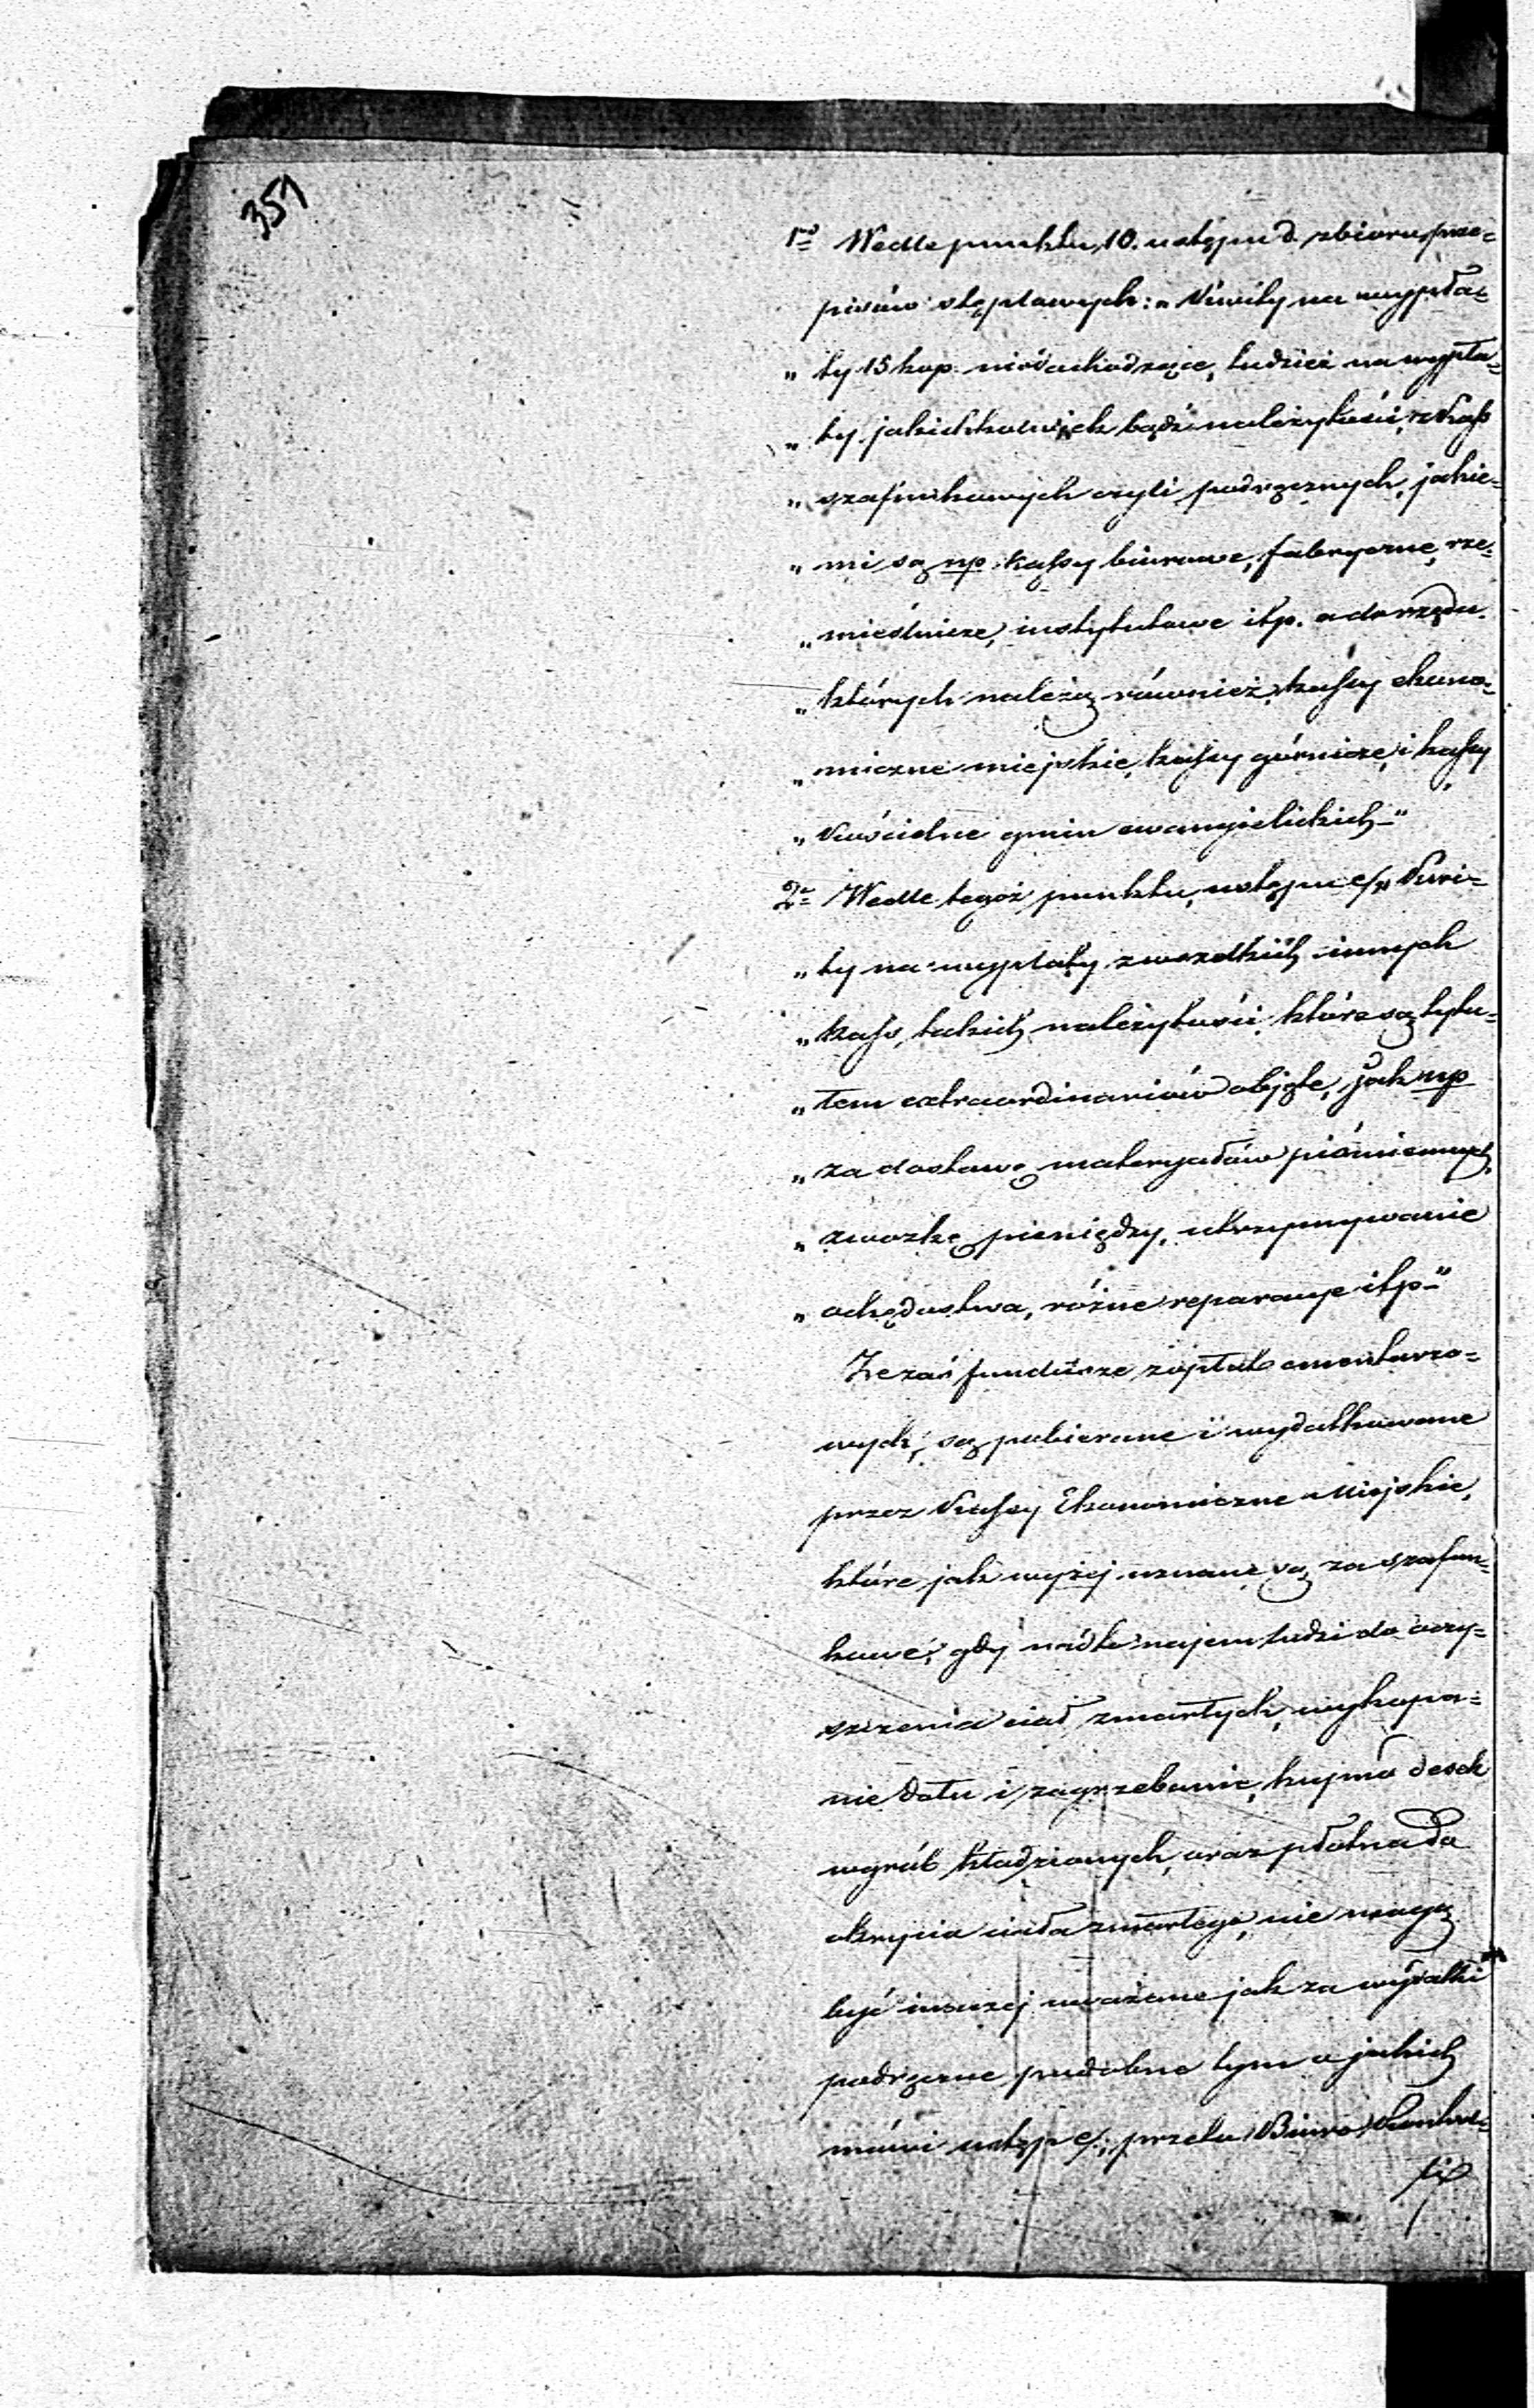 351
1mo Wedle punktu 10. ustępu d. zbioru prze=
pisów stęplowych: „Kwity na wypła=
„ty 15 kop. niedochodzące, tudzież na wypła=
„ty jakichkolwiek bądź należytości, z kass
„szafunkowych czyli podręcznych, jakie=
„mi są np. kassy biurowe, fabryczne, rze=
„mieślnicze, instytutowe itp. a do rzędu
„których należą również kassy ekono=
„miczne miejskie, kassy górnicze, i kassy
„Kościelne gmin ewangielickich –"
2o Wedle tegoż punktu, ustępu e/. „Kwi=
„ty na wypłaty z wszelkich innych
„kass, takich należytości, które są tytu=
„łem extraordinariów objęte, jak np
„za dostawę materyałów piśmiennych,
„zwózkę pieniędzy, utrzymywanie
„ochędostwa, różne reparacye itp –"
Że zaś fundusze z opłat cmentarzo=
wych, są pobierane i wydatkowane
przez Kassy Ekonomiczne Miejskie,
które jak wyżej uznane są za szafun=
kowe, gdy nadto najem ludzi do oczy=
szczenia ciał zmarłych, wykopa=
nie dołu i zagrzebanie, kupno desek
w grób kładzionych, oraz płótna do
okrycia ciała zmarłego, nie mogą
być inaczej uważane jak za wydatki
podręczne podobne tym o jakich
mówi ustęp e/., przeto Biuro Kontro=
li